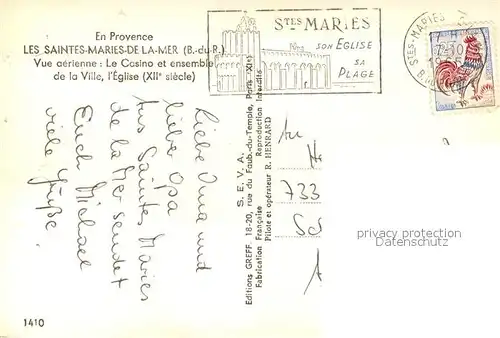 En Provence
LES SAINTES-MARIES-DE LA-MER (B.-du-R.)
Vue aérienne : Le Casino et ensemble
de la Ville, l'Église (XIIe siècle)
STES MARIES
SON EGLISE
SA
PLAGE
STES-MARIES
Liebe Oma und
liebe Opa
aus Saintes Maries
de la Mer sendet
Euch Michael
viele Grüße.
Editions GREFF, 18-20, rue du Faub.-du-Temple, Paris XIe
S.E.V.A.
Fabrication Française Reproduction Interdite
Pilote et opérateur R. HENRARD
An
733
privacy protection
Datenschutz
1410